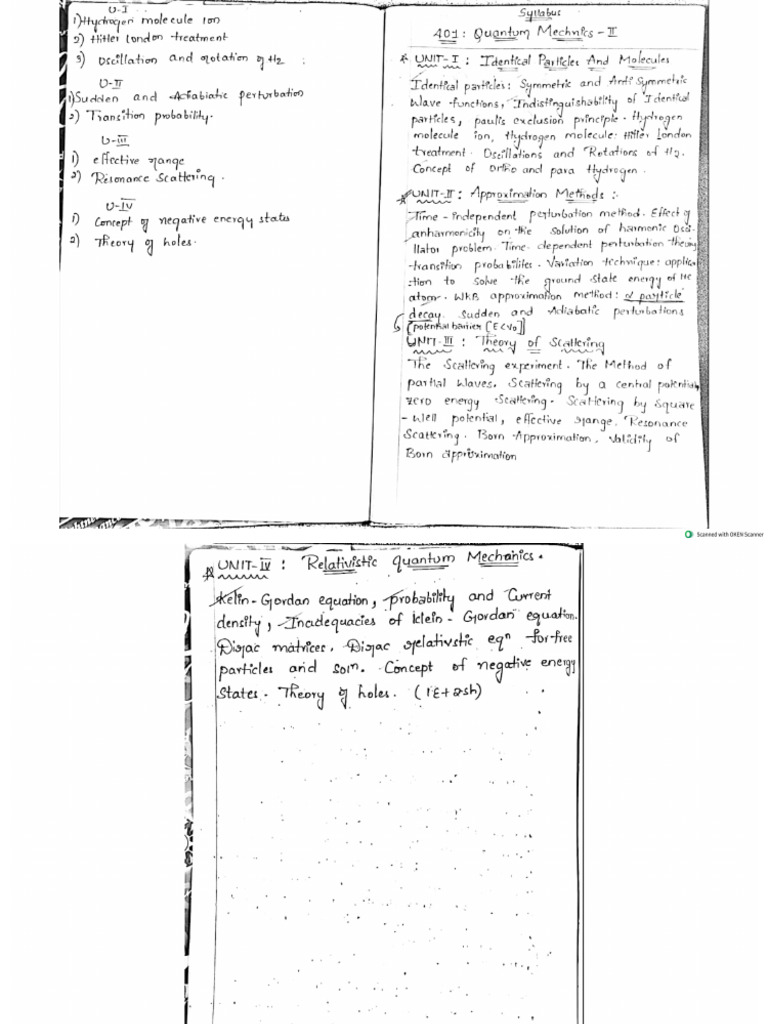 U-I
1) Hydrogen molecule Ion
2) Hitler London treatment
3) Oscillation and rotation of H2
U-II
1) Sudden and Adiabiatic perturbation
2) Transition probability.
U-III
1) effective range
2) Resonance Scattering.
U-IV
1) Concept of negative energy states
2) Theory of holes.
Syllabus
401: Quantum Mechnics-II
* UNIT-I : Identical Particles And Molecules
Identical particles: Symmetric and Anti Symmetric
Wave-functions, Indistinguishability of Identical
particles, paulis exclusion principle. Hydrogen
molecule ion, Hydrogen molecule: Hitler London
treatment. Oscillations and Rotations of H2.
Concept of Ortho and para Hydrogen.
* UNIT-II : Approximation Methods :-
Time-independent perturbation method. Effect of
anharmonicity on the solution of harmonic Osci
llator problem. Time-dependent perturbation theory
transition probabilites. Variation technique: applica
-tion to solve the ground state energy of He
atom. WKB approximation method: α particle
decay. Sudden and Adiabatic perturbations
[potential barrier [E<V0]]
UNIT-III : Theory of Scattering
The Scattering experiment. The Method of
partial Waves. Scattering by a central potential,
zero energy Scattering. Scattering by Square
-Well potential, effective range, Resonance
Scattering. Born-Approximation, Validity of
Born approximation
Scanned with OKEN Scanner
* UNIT-IV : Relativistic quantum Mechanics.
Kelin-Gordan equation, probability and Current
density, Inadequacies of klein-Gordan equation.
Dirac matrices. Dirac relativstic eqn for-free
particles and soln. Concept of negative energy
States. Theory of holes. (1E+2sh)